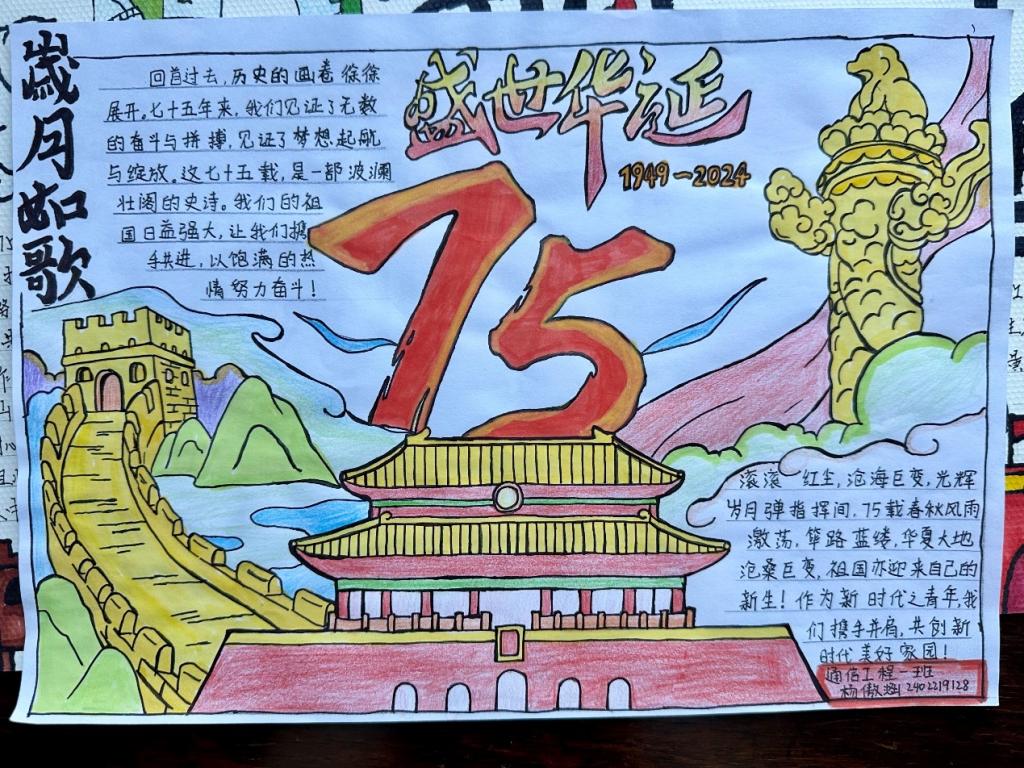 歲月如歌
回首过去,历史的画卷徐徐
展开。七十五年来,我们见证了无数
的奋斗与拼搏,见证了梦想起航
与绽放。这七十五载,是一部波澜
壮阔的史诗。我们的祖
国日益强大,让我们携
手共进,以饱满的热
情努力奋斗!
盛世华诞
1949~2024
75
滚滚红尘,沧海巨变,光辉
岁月弹指挥间,75载春秋风雨
激荡,筚路蓝缕,华夏大地
沧桑巨变,祖国亦迎来自己的
新生!作为新时代之青年,我
们携手并肩,共创新
时代美好家园!
通信工程一班
杨傲 2402219128